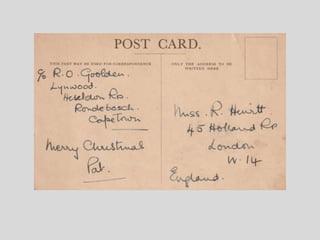 POST CARD.
THIS PART MAY BE USED FOR CORRESPONDENCE
c/o R.O. Goolden.
Lynwood.
Rd.
Rondebosch.
Cape Town
Merry Christmas
Pat.
ONLY THE ADDRESS TO BE
WRITTEN HERE
Miss. R. Hewitt.
45 Holland Rd
London
W. 14
England.